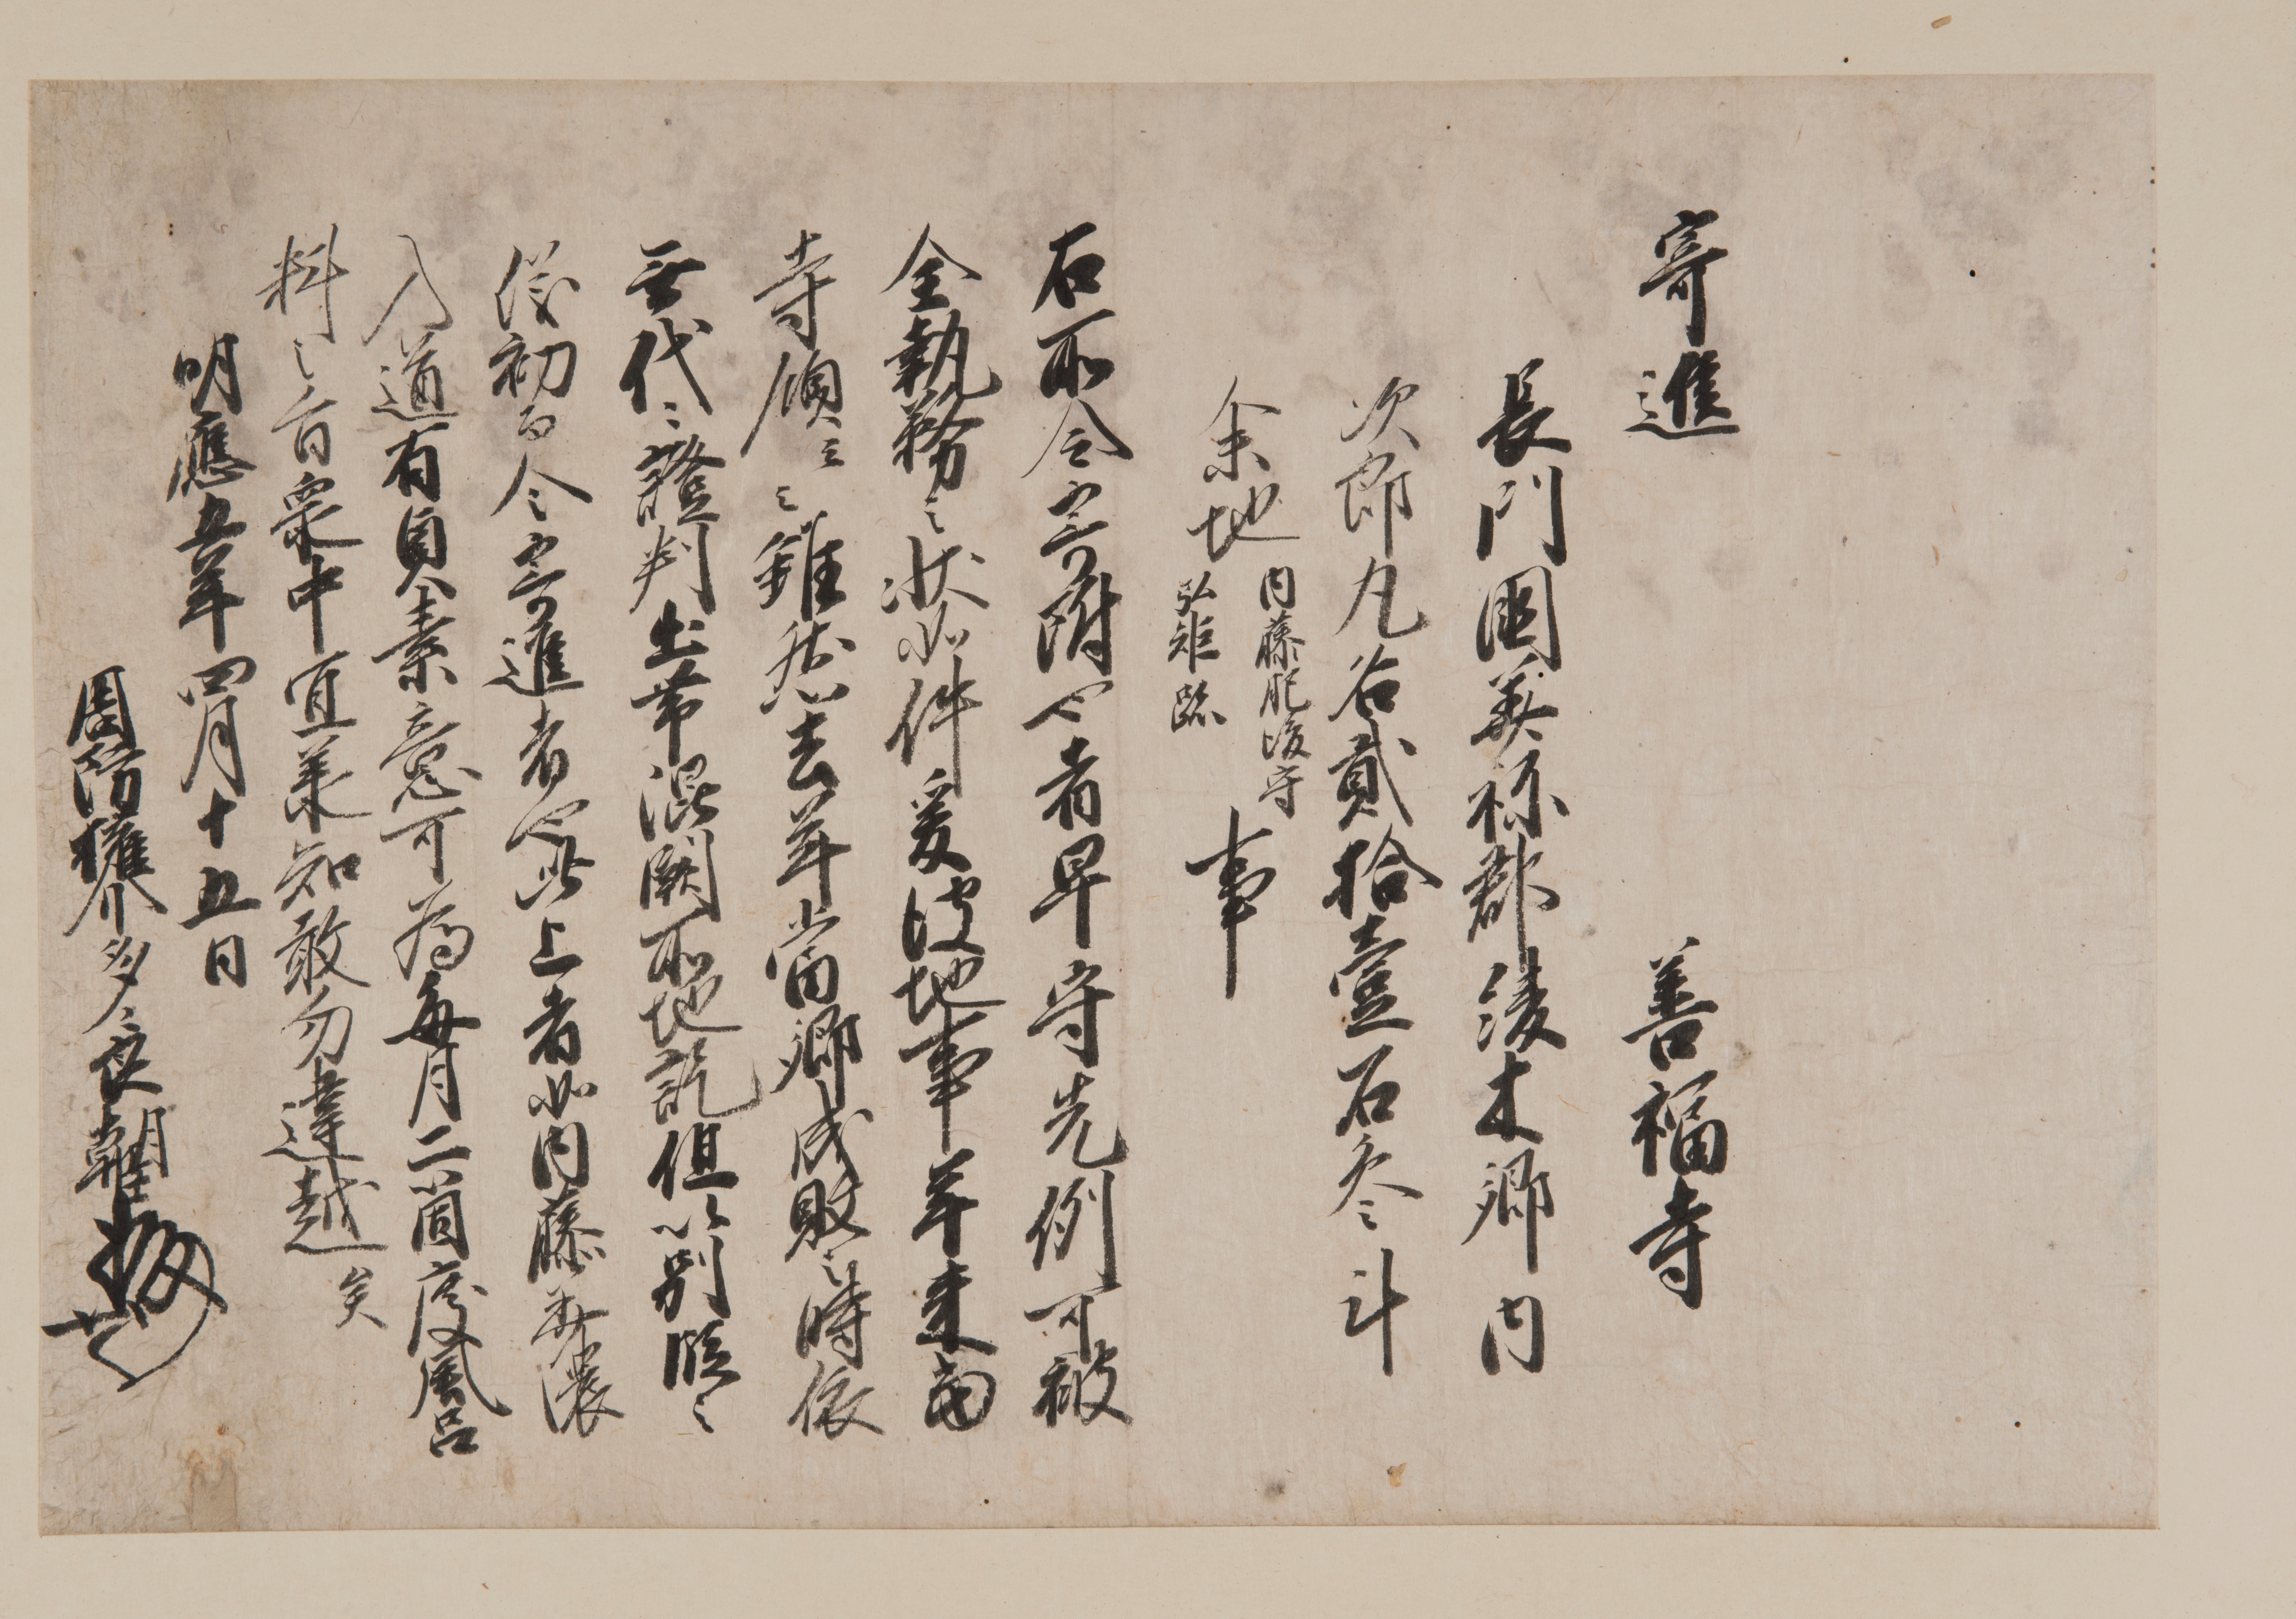 寄進　善福寺
長門國美祢郡綾木郷内
次郎丸名貳拾壹石参斗
余地 内藤肥後守
弘矩跡 事
右所令寄附也者早守先例可被
全執務之状如件爰彼地事年来為
寺領云々雖然去年當郷成敗之時依
無代々證判出帯混闕所地訖但以別段之
儀初而令寄進者也此上者如内藤美濃
入道有貞素意可為毎月二箇度風呂
料之旨衆中宜承知敢勿違越矣
明應五年四月十五日
周防權介多々良朝臣